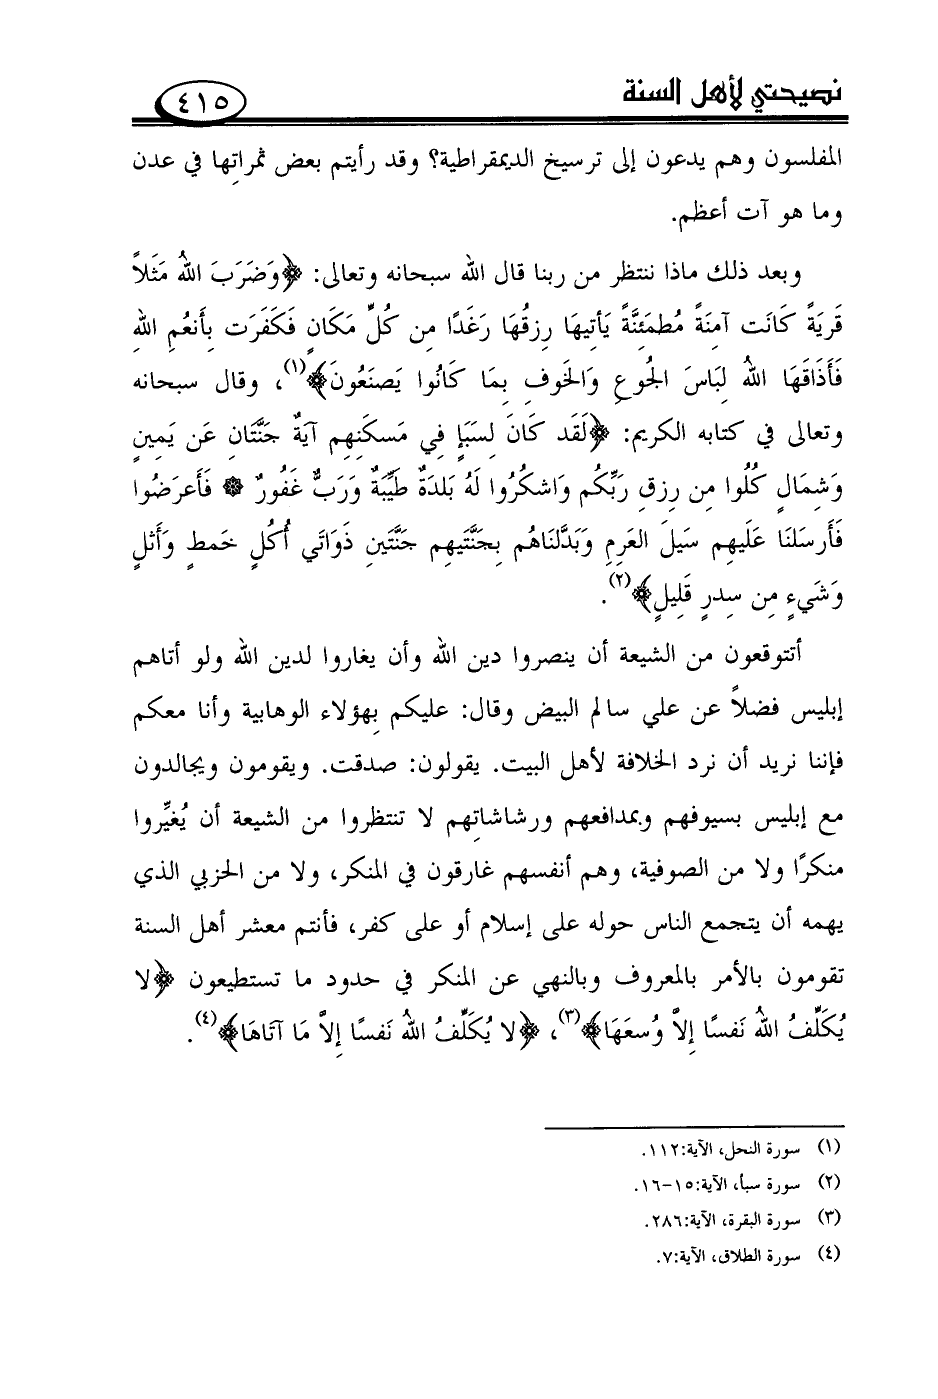 نصيحتي لأهل السنة
٤١٥
المفلسون وهم يدعون إلى ترسيخ الديمقراطية؟ وقد رأيتم بعض ثمراتِها في عدن
وما هو آت أعظم.
وبعد ذلك ماذا ننتظر من ربنا قال الله سبحانه وتعالى: ﴿وَضَرَبَ اللهُ مَثَلاً
قَريَةً كَانَت آمِنَةً مُطمَئِنَّةً يَأتِيهَا رِزقُهَا رَغَدًا مِن كُلِّ مَكَانٍ فَكَفَرَت بِأَنعُمِ اللهِ
فَأَذَاقَهَا اللهُ لِبَاسَ الجُوعِ وَالخَوفِ بِمَا كَانُوا يَصنَعُونَ﴾(١)، وقال سبحانه
وتعالى في كتابه الكريم: ﴿لَقَد كَانَ لِسَبَإٍ فِي مَسكَنِهِم آيَةٌ جَنَّتَانِ عَن يَمِينٍ
وَشِمَالٍ كُلُوا مِن رِزقِ رَبِّكُم وَاشكُرُوا لَهُ بَلدَةٌ طَيِّبَةٌ وَرَبٌّ غَفُورٌ * فَأَعرَضُوا
فَأَرسَلنَا عَلَيهِم سَيلَ العَرِمِ وَبَدَّلنَاهُم بِجَنَّتَيهِم جَنَّتَينِ ذَوَاتَي أُكُلٍ خَمطٍ وَأَثلٍ
وَشَيءٍ مِن سِدرٍ قَلِيلٍ﴾(٢).
أتتوقعون من الشيعة أن ينصروا دين الله وأن يغاروا لدين الله ولو أتاهم
إبليس فضلاً عن علي سالم البيض وقال: عليكم بِهؤلاء الوهابية وأنا معكم
فإننا نريد أن نرد الخلافة لأهل البيت. يقولون: صدقت. ويقومون ويجالدون
مع إبليس بسيوفهم وبمدافعهم ورشاشاتِهم لا تنتظروا من الشيعة أن يُغيِّروا
منكرًا ولا من الصوفية، وهم أنفسهم غارقون في المنكر، ولا من الحزبي الذي
يهمه أن يتجمع الناس حوله على إسلام أو على كفر، فأنتم معشر أهل السنة
تقومون بالأمر بالمعروف وبالنهي عن المنكر في حدود ما تستطيعون ﴿لا
يُكَلِّفُ اللهُ نَفسًا إِلاَّ وُسعَهَا﴾(٣)، ﴿لا يُكَلِّفُ اللهُ نَفسًا إِلاَّ مَا آتَاهَا﴾(٤).
(١) سورة النحل، الآية:١١٢.
(٢) سورة سبأ، الآية:١٥-١٦.
(٣) سورة البقرة، الآية:٢٨٦.
(٤) سورة الطلاق، الآية:٧.